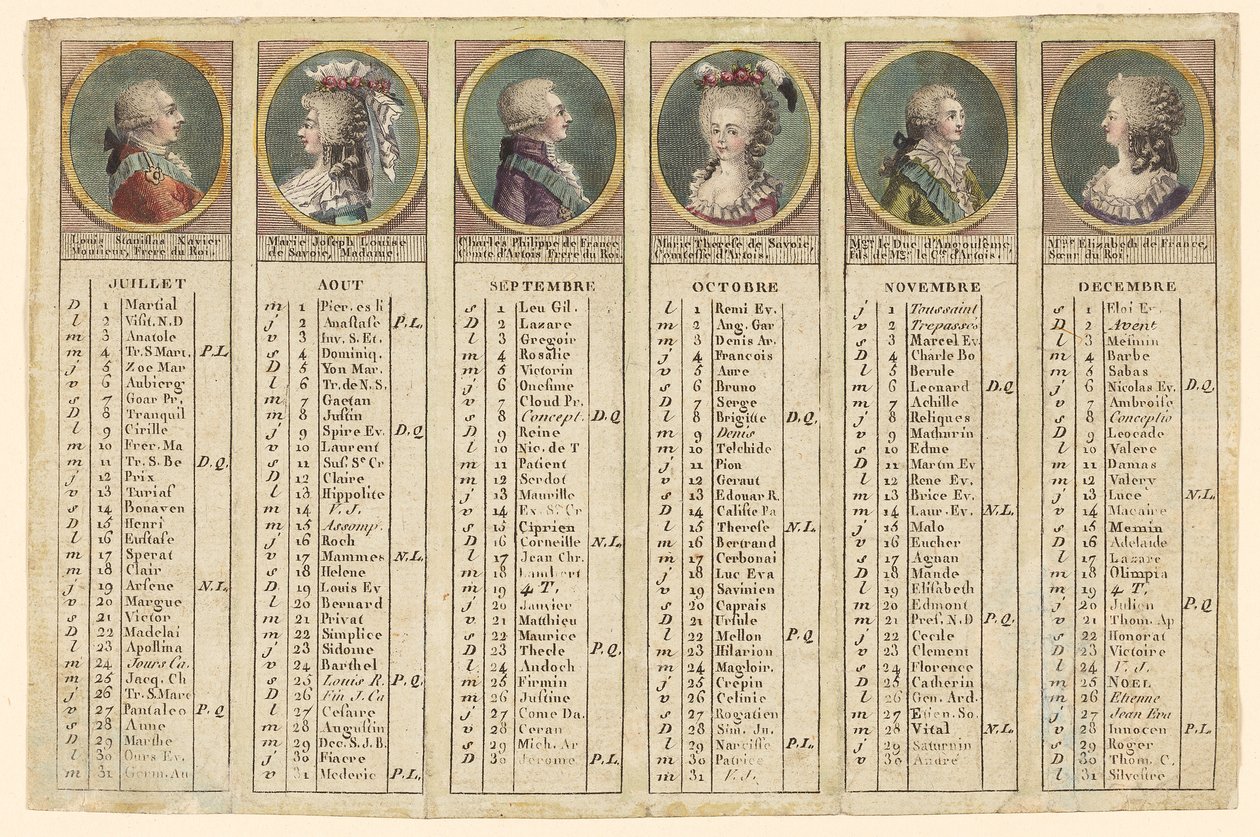 Louis Stanislas Xavier
Monsieur, Frere du Roi.
JUILLET
D 1 Martial
l 2 Visit. N.D
m 3 Anatole
m 4 Tr. S Mart. P.L
j 5 Zoe Mar
v 6 Aubierg
s 7 Goar Pr.
D 8 Tranquil
l 9 Cirille
m 10 Frer. Ma
m 11 Tr. S. Be D.Q.
j 12 Prix
v 13 Turiaf
s 14 Bonaven
D 15 Henri
l 16 Eustase
m 17 Sperat
m 18 Clair
j 19 Arsene N.L.
v 20 Margue
s 21 Victor
D 22 Madelai
l 23 Apollina
m 24 Jours Ca.
m 25 Jacq. Ch
j 26 Tr. S. Marc
v 27 Pantaleo P.Q
s 28 Anne
D 29 Marthe
l 30 Ours Ev.
m 31 Germ. Au
Marie Joseph Louise
de Savoie, Madame.
AOUT
m 1 Pier. es li
j 2 Anastase P.L.
v 3 Inv. S. Et.
s 4 Dominiq.
D 5 Yon Mar.
l 6 Tr. de N.S.
m 7 Gaetan
m 8 Justin
j 9 Spire Ev. D.Q
v 10 Laurent
s 11 Sus. Se Cr
D 12 Claire
l 13 Hippolite
m 14 V. J.
m 15 Assomp.
j 16 Roch
v 17 Mammes N.L.
s 18 Helene
D 19 Louis Ev
l 20 Bernard
m 21 Privat
m 22 Simplice
j 23 Sidoine
v 24 Barthel
s 25 Louis R. P.Q.
D 26 Fin J. Ca
l 27 Cesaire
m 28 Augustin
m 29 Dec. S. J. B.
j 30 Fiacre
v 31 Mederic P.L.
Charles Philippe de France
Comte d'Artois Frere du Roi.
SEPTEMBRE
s 1 Leu Gil.
D 2 Lazare
l 3 Gregoir
m 4 Rosalie
m 5 Victorin
j 6 Onesime
v 7 Cloud Pr.
s 8 Concept. D.Q.
D 9 Reine
l 10 Nic. de T
m 11 Patient
m 12 Serdot
j 13 Maurille
v 14 Ex. Se Cr
s 15 Ciprien
D 16 Corneille N.L.
l 17 Jean Chr.
m 18 Lambert
m 19 4 T.
j 20 Janvier
v 21 Matthieu
s 22 Maurice
D 23 Thecle P.Q.
l 24 Andoch
m 25 Firmin
m 26 Justine
j 27 Come Da.
v 28 Ceran
s 29 Mich. Ar
D 30 Jerome P.L.
Marie Therese de Savoie,
Comtesse d'Artois.
OCTOBRE
l 1 Remi Ev.
m 2 Ang. Gar
m 3 Denis Ar.
j 4 Francois
v 5 Aure
s 6 Bruno
D 7 Serge
l 8 Brigitte D.Q.
m 9 Denis
m 10 Telchide
j 11 Pion
v 12 Geraut
s 13 Edouar R.
D 14 Caliste Pa
l 15 Therese N.L.
m 16 Bertrand
m 17 Cerbonai
j 18 Luc Eva
v 19 Savinien
s 20 Caprais
D 21 Ursule
l 22 Mellon P.Q
m 23 Hilarion
m 24 Magloir.
j 25 Crepin
v 26 Celinie
s 27 Rogatien
D 28 Sim. Ju.
l 29 Narcisse P.L.
m 30 Patrice
m 31 V. J.
Mgr. le Duc d'Angouleme,
Fils de Mgr. le Cte. d'Artois.
NOVEMBRE
j 1 Toussaint
v 2 Trepassés
s 3 Marcel Ev.
D 4 Charle Bo
l 5 Berule
m 6 Leonard D.Q
m 7 Achille
j 8 Reliques
v 9 Mathurin
s 10 Edme
D 11 Martin Ev
l 12 Rene Ev.
m 13 Brice Ev.
m 14 Laur. Ev. N.L.
j 15 Malo
v 16 Eucher
s 17 Agnan
D 18 Mande
l 19 Elisabeth
m 20 Edmont
m 21 Pres. N.D P.Q.
j 22 Cecile
v 23 Clement
s 24 Florence
D 25 Catherin
l 26 Gen. Ard.
m 27 Etien. So.
m 28 Vital N.L.
j 29 Saturnin
v 30 André
Mme. Elizabeth de France,
Sœur du Roi.
DECEMBRE
s 1 Eloi Ev.
D 2 Avent
l 3 Mesmin
m 4 Barbe
m 5 Sabas
j 6 Nicolas Ev. D.Q.
v 7 Ambroise
s 8 Conceptio
D 9 Leocade
l 10 Valere
m 11 Damas
m 12 Valery
j 13 Luce N.L.
v 14 Macaire
s 15 Memin
D 16 Adelaide
l 17 Lazare
m 18 Olimpia
m 19 4 T.
j 20 Julien P.Q
v 21 Thom. Ap
s 22 Honorat
D 23 Victoire
l 24 V. J.
m 25 NOEL
m 26 Etienne
j 27 Jean Eva
v 28 Innocen P.L.
s 29 Roger
D 30 Thom. C.
l 31 Silvestre